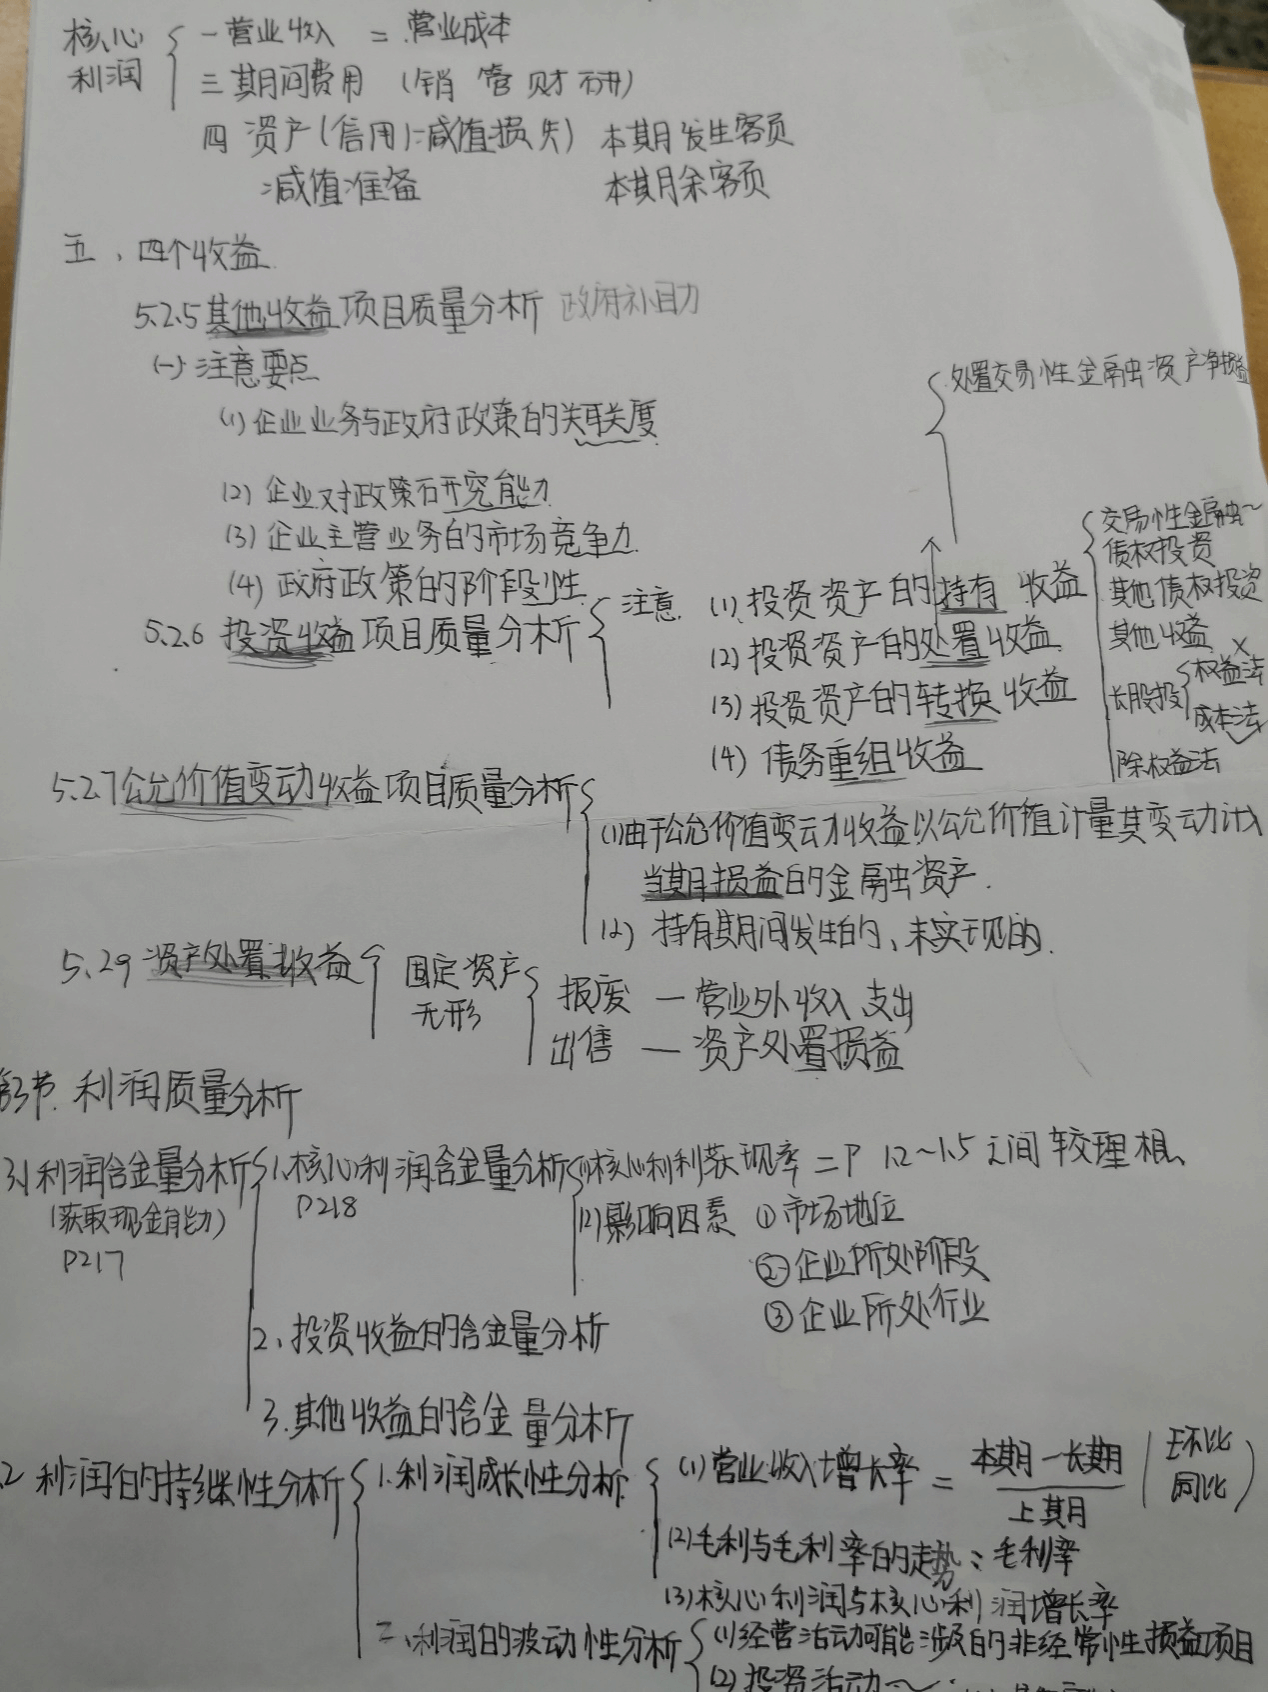 核心利润
一 营业收入 二 营业成本
三 期间费用 (销 管 财 研)
四 资产(信用)减值损失) 本期发生客页
减值准备 本期余客页
五、四个收益
5.2.5 其他收益项目质量分析 政府补助
(一) 注意要点
(1) 企业业务与政府政策的关联关度
(2) 企业对政策研究能力
(3) 企业主营业务的市场竞争力
(4) 政府政策的阶段性
处置交易性金融资产净损益
5.2.6 投资收益项目质量分析 注意
(1) 投资资产的持有收益
(2) 投资资产的处置收益
(3) 投资资产的转换收益
(4) 债务重组收益
交易性金融~
债权投资
其他债权投资
其他收益
长股投 权益法 ×
成本法 ✓
除权益法
5.2.7 公允价值变动收益项目质量分析
(1) 由于公允价值变动收益以公允价值计量其变动计入
当期损益的金融资产.
(2) 持有期间发生的、未实现的.
5.29 资产处置收益
固定资产
无形
报废 — 营业外收入 支出
出售 — 资产处置损益
第3节. 利润质量分析
3.1 利润含金量分析
(获取现金能力)
P217
1.核心利润含金量分析
P218
(1)核心利利获现率 = P 1.2~1.5 之间较理想、
(2)影响因素 ①市场地位
②企业所处阶段
③企业所处行业
2、投资收益的含金量分析
3.其他收益的含金量分析
.2 利润的持续性分析
1.利润成长性分析
(1)营业收入增长率 = 本期-长期 / 上期 (环比 同比)
(2)毛利与毛利率的走势:毛利率
(3)核心利润与核心利润增长率
二、利润的波动性分析
(1)经营活动可能涉及的非经常性损益项目
(2)投资活动~